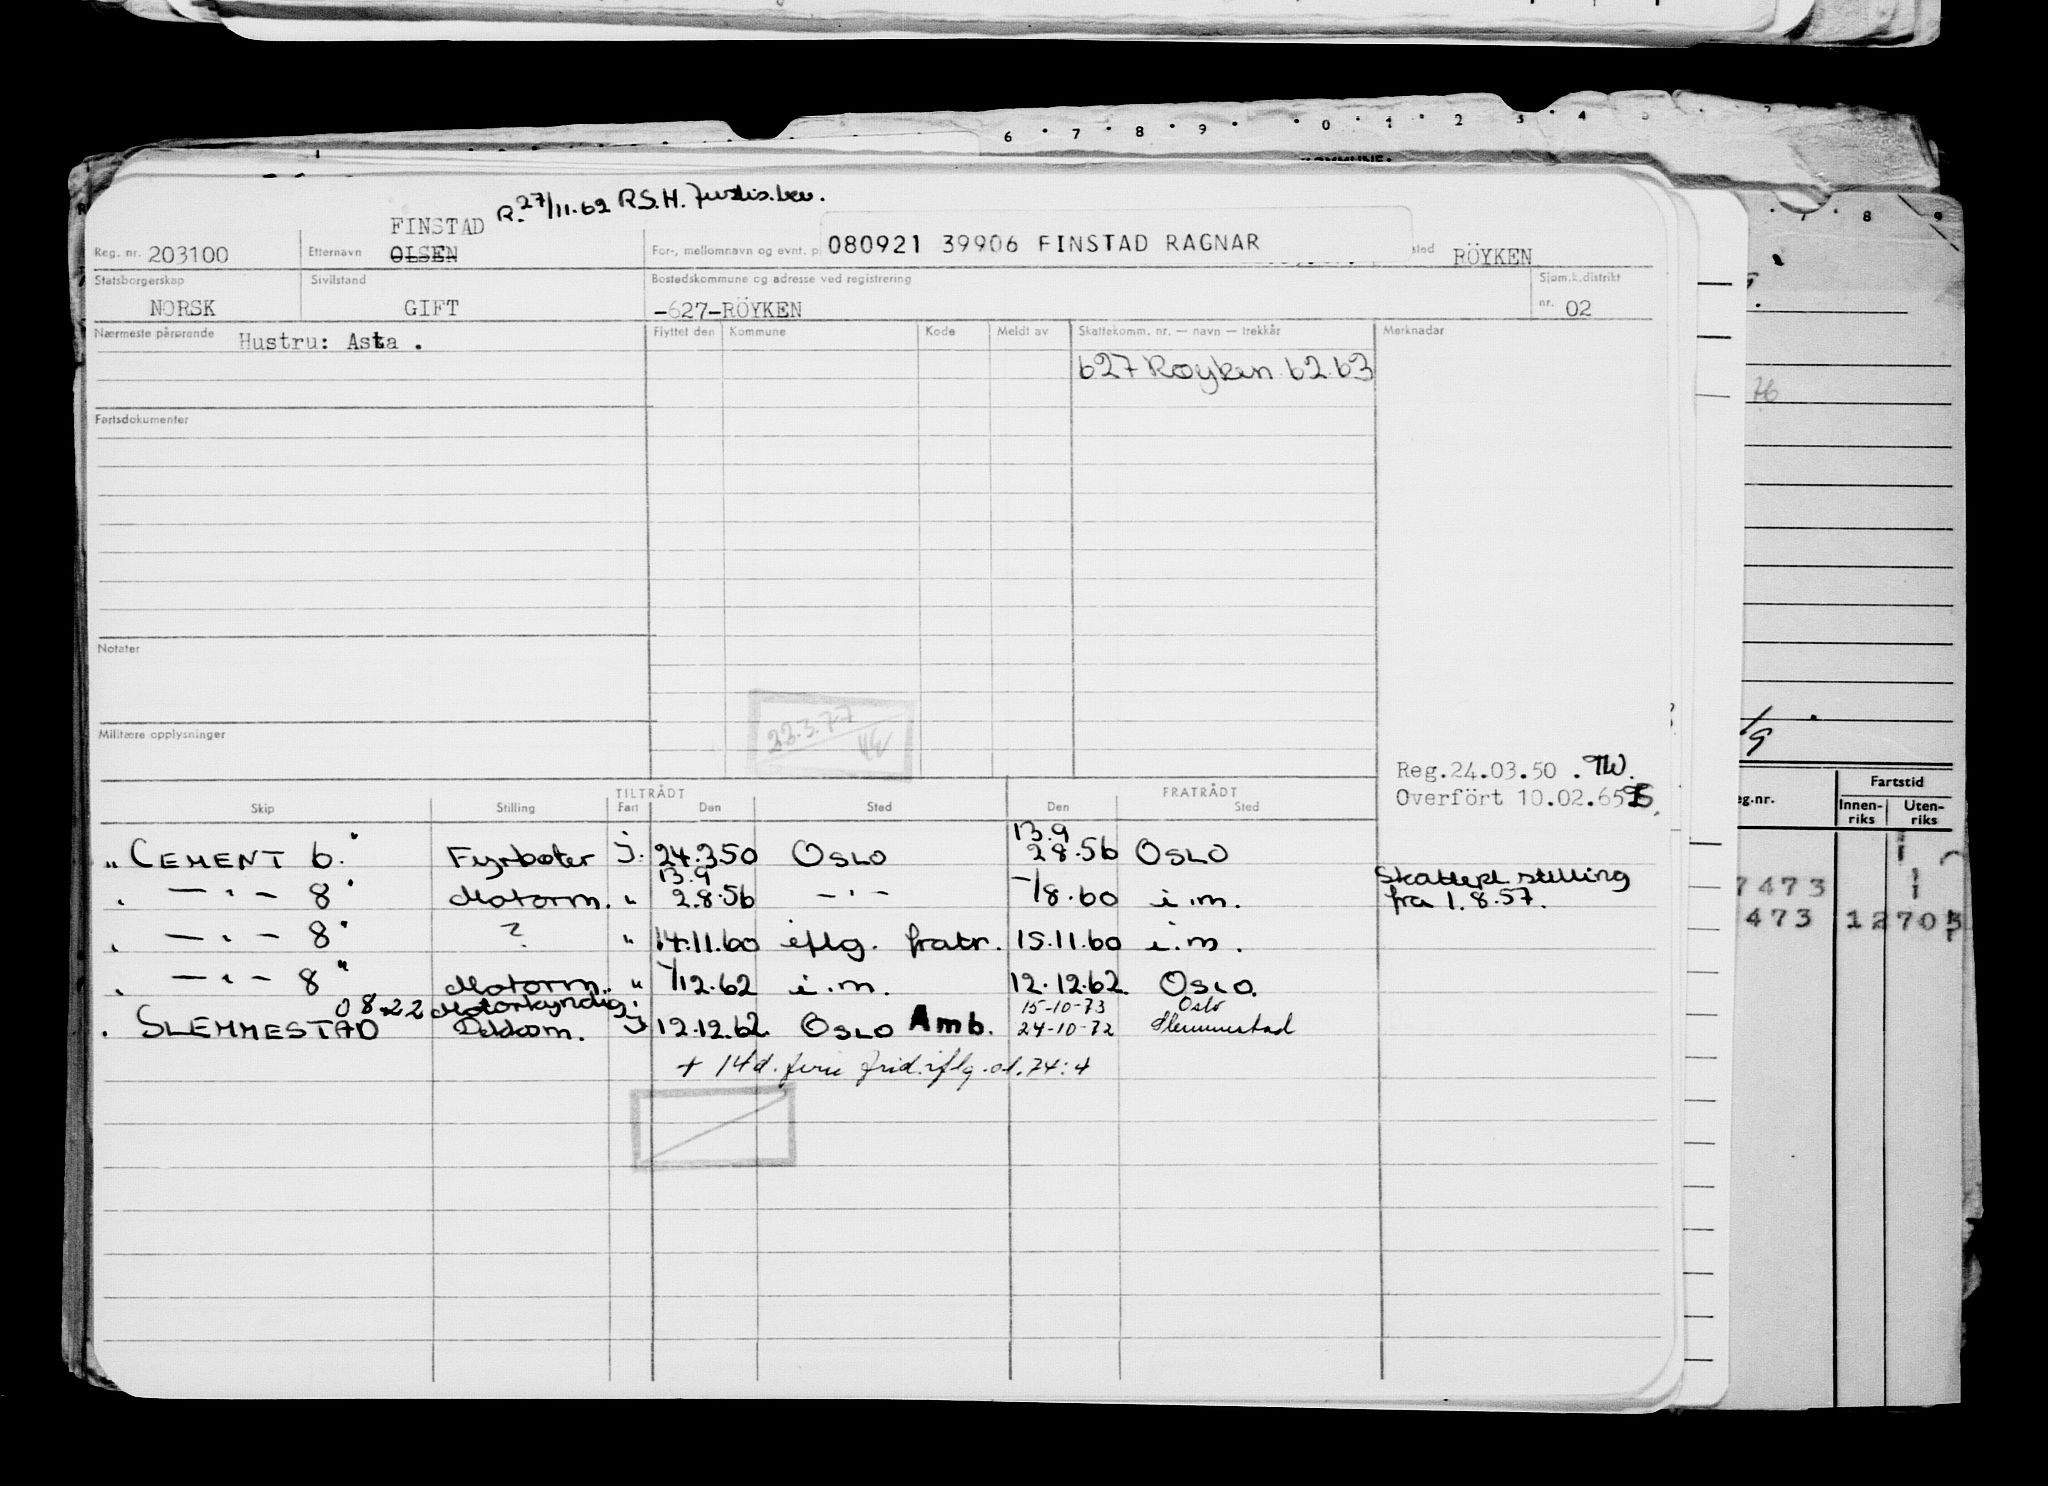 6 · 7 · 8 · 9 · · 0 · 1 · 2 3 · 4 5
R. 27/11.62 R.S.H. Justis.dep.
FINSTAD
Reg. nr. 203100 Etternavn OLSEN For-, mellomnavn og evnt. p 080921 39906 FINSTAD RAGNAR sted RÖYKEN
Statsborgerskap Sivilstand Bostedskommune og adresse ved registrering Sjøm.k.distrikt
NORSK GIFT -627-RÖYKEN nr. 02
Nærmeste pårørende Hustru: Asta . Flyttet den Kommune Kode Meldt av Skattekomm. nr. — navn — trekkår Merknadar
627 Røyken 62 63
Fartsdokumenter
Notater
22.3.77
Militære opplysninger
Reg.24.03.50 . TW.
Overfört 10.02.65
TILTRÅDT FRATRÅDT
Skip Stilling Fart Den Sted Den Sted
13.9
" CEMENT 6." Fyrbøter j. 24.3.50 OSLO 28.56 OSLO
13.9
" — " — 8" Motorm. " 2.8.56 — " — -/8.60 i.m. Skattepl. stilling fra 1.8.57.
" — " — 8" ? " 14.11.60 iflg. fratr. 15.11.60 i.m.
" — " — 8" Motorm. " -/12.62 i.m. 12.12.62 OSLO.
0822 Motorkyndig 15-10-73 Oslo
" SLEMMESTAD Dekksm. j 12.12.62 OSLO Amb. 24-10-72 Slemmestad
+ 14 d. ferie frid. iflg. 74:4
Fartstid
eg.nr. Innen-riks Uten-riks
7473
473 12703